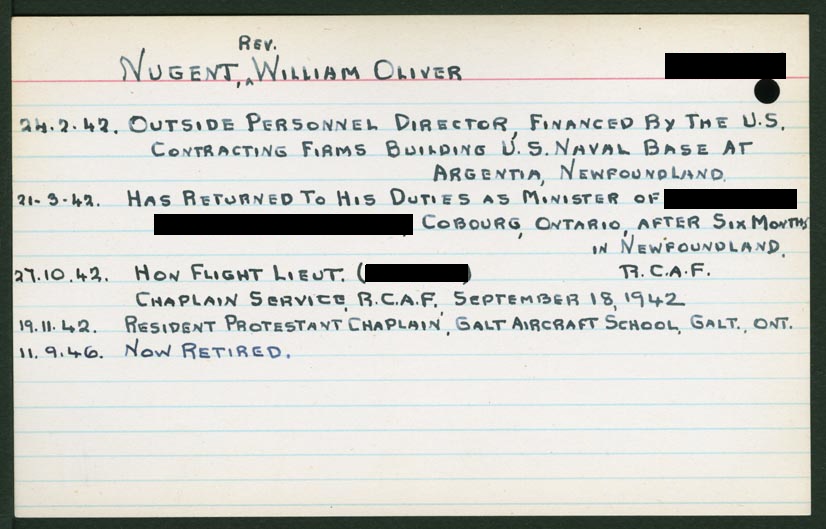 REV.
NUGENT, ^ WILLIAM OLIVER
24.2.42. OUTSIDE PERSONNEL DIRECTOR, FINANCED BY THE U.S.
CONTRACTING FIRMS BUILDING U.S. NAVAL BASE AT
ARGENTIA, NEWFOUNDLAND.
21-3-42. HAS RETURNED TO HIS DUTIES AS MINISTER OF
, COBOURG, ONTARIO, AFTER SIX MONTHS
IN NEWFOUNDLAND.
27.10.42. HON FLIGHT LIEUT. ( ) R.C.A.F.
CHAPLAIN SERVICE, R.C.A.F. SEPTEMBER 18, 1942
19.11.42. RESIDENT PROTESTANT CHAPLAIN, GALT AIRCRAFT SCHOOL, GALT., ONT.
11.9.46. NOW RETIRED.